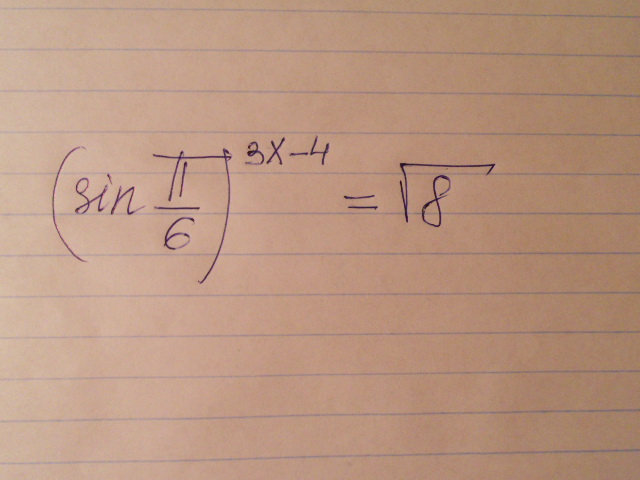 (sin π/6)^3x-4 = √8